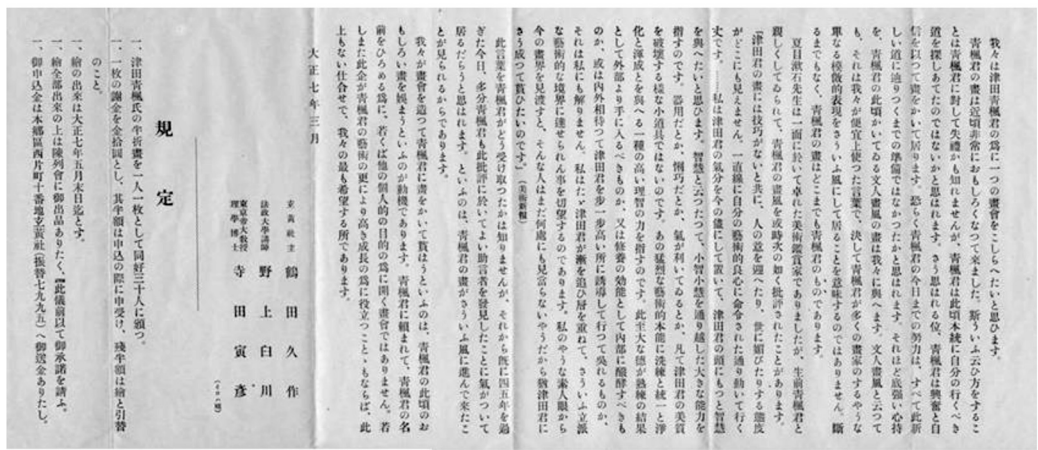 我々は津田青楓君の爲に一つの畫會をこしらへたいと思ひます。
青楓君の畫は近頃非常におもしろくなつて來ました。斯ういふ云ひ方をするこ
とは青楓君に對して失禮かも知れませんが、青楓君は此頃本統に自分の行くべき
道を探しあてたのではないかと思はれます。さう思はれる位、青楓君は興奮と自
信を以つて畫をかいて居ります。恐らく青楓君の今日までの努力は、すべて此新
しい道に辿りつくまでの準備ではなかつたかと思はれます。それほど底强い心持
を、青楓君の此頃かいてゐる文人畫風の畫は我々に與へます。文人畫風と云つて
も、それは我々が便宜上使つた言葉で、決して青楓君が多くの畫家のするやうな
單なる模倣的表現をさういふ風にして居ることを意味するのではありません。斷
るまでもなく、青楓君の畫はどこまでも青楓君のものであります。
夏目漱石先生は一面に於いて卓れた美術鑑賞家でありましたが、生前青楓君と
親しくしてゐられて、青楓君の畫風を或時次の如く批評されたことがあります。
「津田君の畫には技巧がないと共に、人の意を迎へたり、世に媚びたりする態度
がどこにも見えません。一直線に自分の藝術的良心に命令された通り動いて行く
丈です。――私は津田君の氣分を今の儘にして置いて、津田君の頭にもつと智慧
を與へたいと思ひます。智慧と云つたつて、小智小慧を通り越した大きな能力を
指すのです。器用だとか、悧巧だとか、氣が利いてゐるとか、凡て津田君の美質
を破壞する樣な小道具ではないのです。あの猛烈な藝術的本能に洗練と統一と淨
化と渾成とを與へる一種の高い理智の力を指すのです。此至大な德が熟練の結果
として外部より手に入るべきものか、又は修養の効能として内部に醗酵すべきも
のか、或は内外相待つて津田君を歩一歩高い所に誘導して行つて吳れるものか、
それは私にも解りません。私はたゞ津田君が漸を追ひ層を重ねて、さういふ立派
な藝術的な境界に達せられん事を切望するのであります。私のやうな素人眼から
今の畫界を見渡すと、そんな人はまだ何處にも見當らないやうだから猶津田君に
さう成つて貰ひたいのです。」（美術新報）
此言葉を青楓君がどう受け取つたかは知りませんが、それから既に四五年を過
ぎた今日、多分青楓君も此批評に於いてよい助言者を發見したことに氣がついて
居るだらうと思はれます。といふのは、青楓君の畫がさういふ風に進んで來たこ
とが見られるからであります。
我々が畫會を造つて青楓君に畫をかいて貰はうといふのは、青楓君の此頃のお
もしろい畫を娛まうといふのが動機であります。青楓君に賴まれて、青楓君の名
前をひろめる爲に、若くば他の個人的の目的の爲に開く畫會ではありません。若
しまた此企が青楓君の藝術の更により高き成長の爲に役立つこともならば、此
上もない仕合せで、我々の最も希望する所であります。
大正七年三月
玄黃社主 鶴田久作
法政大學講師 野上臼川
東京帝大敎授 理學博士 寺田寅彦
（いろは順）
規定
一、津田青楓氏の半折畫を一人一枚として同好三十人に頒つ。
一、一枚の謝金を金拾圓とし、其半額は申込の際に申受け、殘半額は繪と引替
のこと。
一、繪の出來は大正七年五月末日迄とす。
一、繪全部出來の上は陳列會に御出品ありたく、此儀前以て御承諾を請ふ。
一、御申込金は本鄕區西片町十番地玄黃社（振替七九九五）へ御送金ありたし。